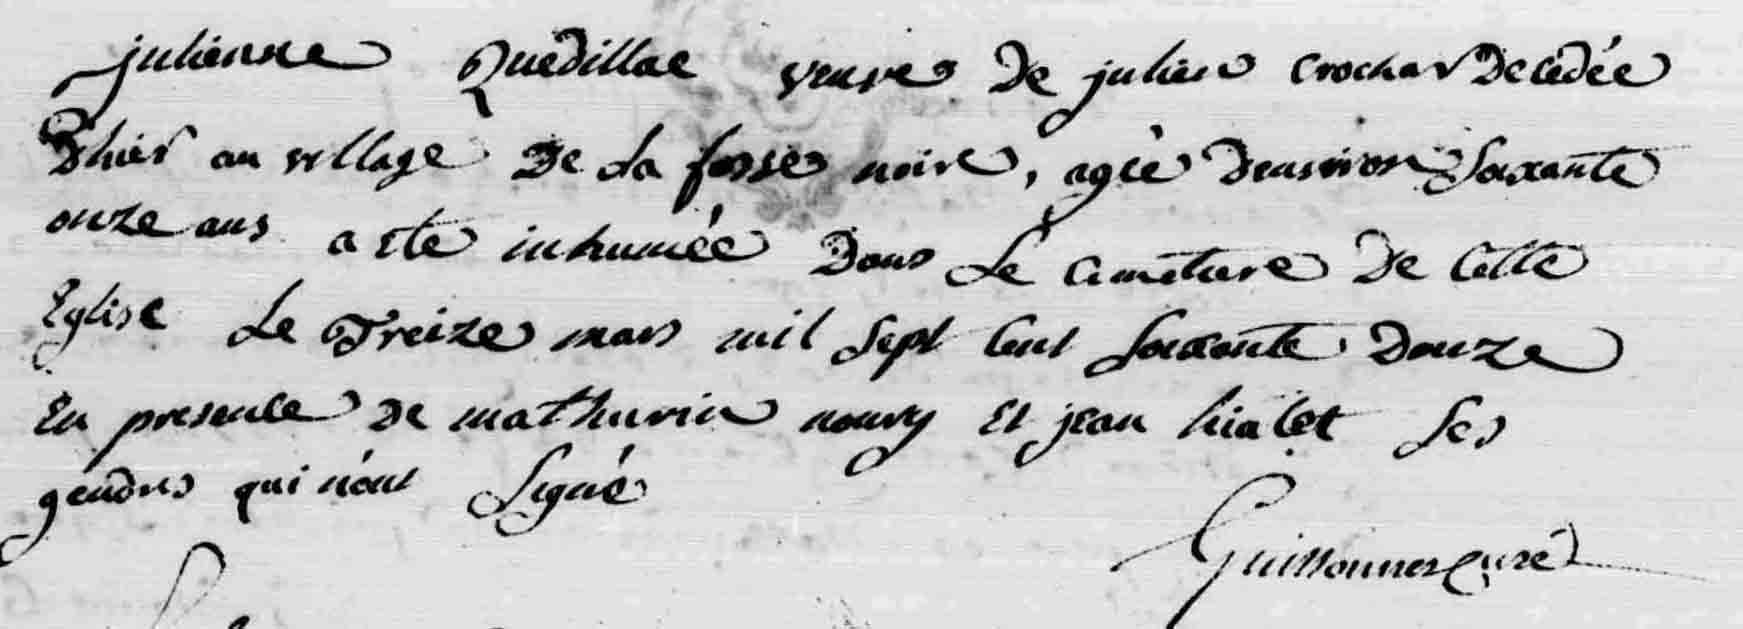 julienne Quedillac veuve de julien crochar decedée
d'hier au village de la fosse noire, agée d'environ soixante
onze ans a ete inhumée dans le cimetiere de cette
Eglise le Treize mars mil sept cent soixante douze
En presence de mathurin noury et jean hialet ses
gendres qui n'ont signé
Guillonner curé